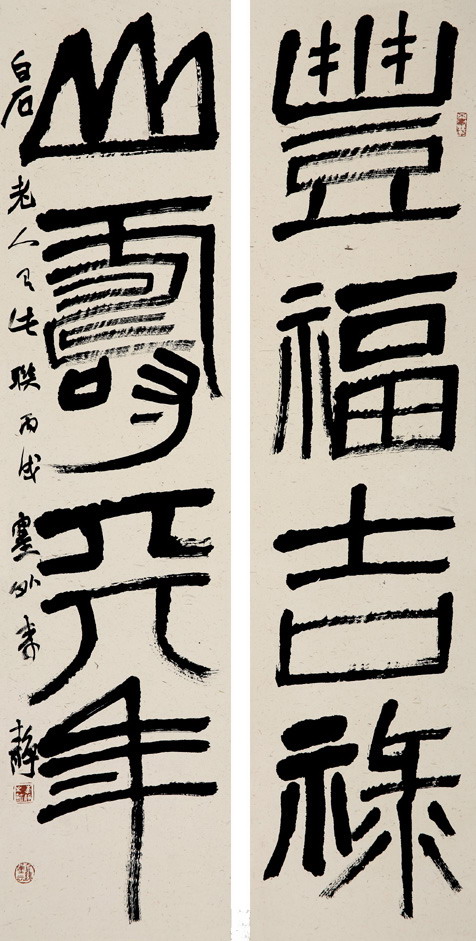 豐福吉祿
山壽年
白石老人有此聯丙戌塞外李靜